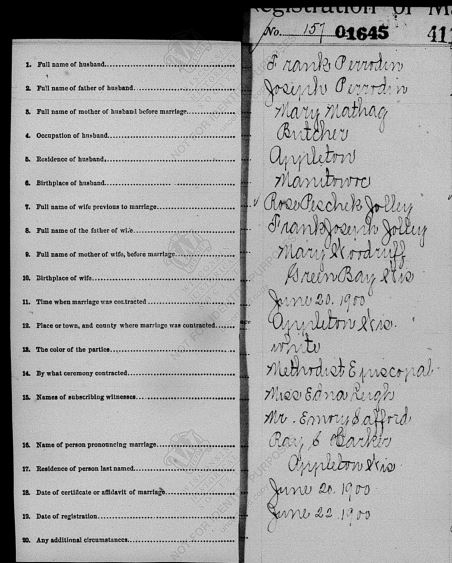 Registration of Ma
No. 157 01645 411
1. Full name of husband Frank Perrodin
2. Full name of father of husband Joseph Perrodin
3. Full name of mother of husband before marriage Mary Mathag
4. Occupation of husband Butcher
5. Residence of husband Appleton
6. Birthplace of husband Manitowoc
7. Full name of wife previous to marriage Rose Peschek Jolley
8. Full name of the father of wife Frank Joseph Jolley
9. Full name of mother of wife, before marriage Mary Woodruff
10. Birthplace of wife Green Bay Wis
11. Time when marriage was contracted June 20. 1900
12. Place or town, and county where marriage was contracted Appleton Wis.
13. The color of the parties white
14. By what ceremony contracted Methodist Episcopal
15. Names of subscribing witnesses Miss Edna Leigh
Mr. Emory Safford
16. Name of person pronouncing marriage Ray S Barker
17. Residence of person last named Appleton Wis
18. Date of certificate or affidavit of marriage June 20. 1900
19. Date of registration June 22. 1900
20. Any additional circumstances